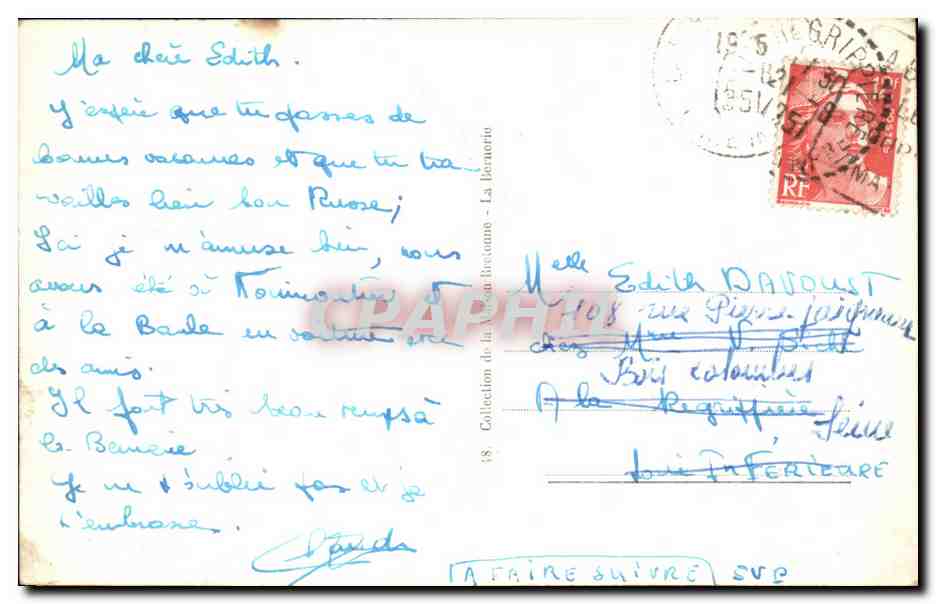 Ma chère Edith.
J'espère que tu passes de
bonnes vacances et que tu tra-
vailles bien ton Russe;
Ici je m'amuse bien, nous
avons été à Noirmoutier et
à la Baule en voiture avec
des amis.
Il fait très beau temps à
la Bernerie
Je ne t'oublie pas et je
t'embrasse.
Claude
18. Collection de la Maison Bretonne - La Bernerie
RF
Melle Edith DAVOUST
108 rue Pierre
chez Mme V.
Bois colombes
A la Regrippière
Seine
Loire INFÉRIEURE
A FAIRE SUIVRE SVP
CPAPHIL